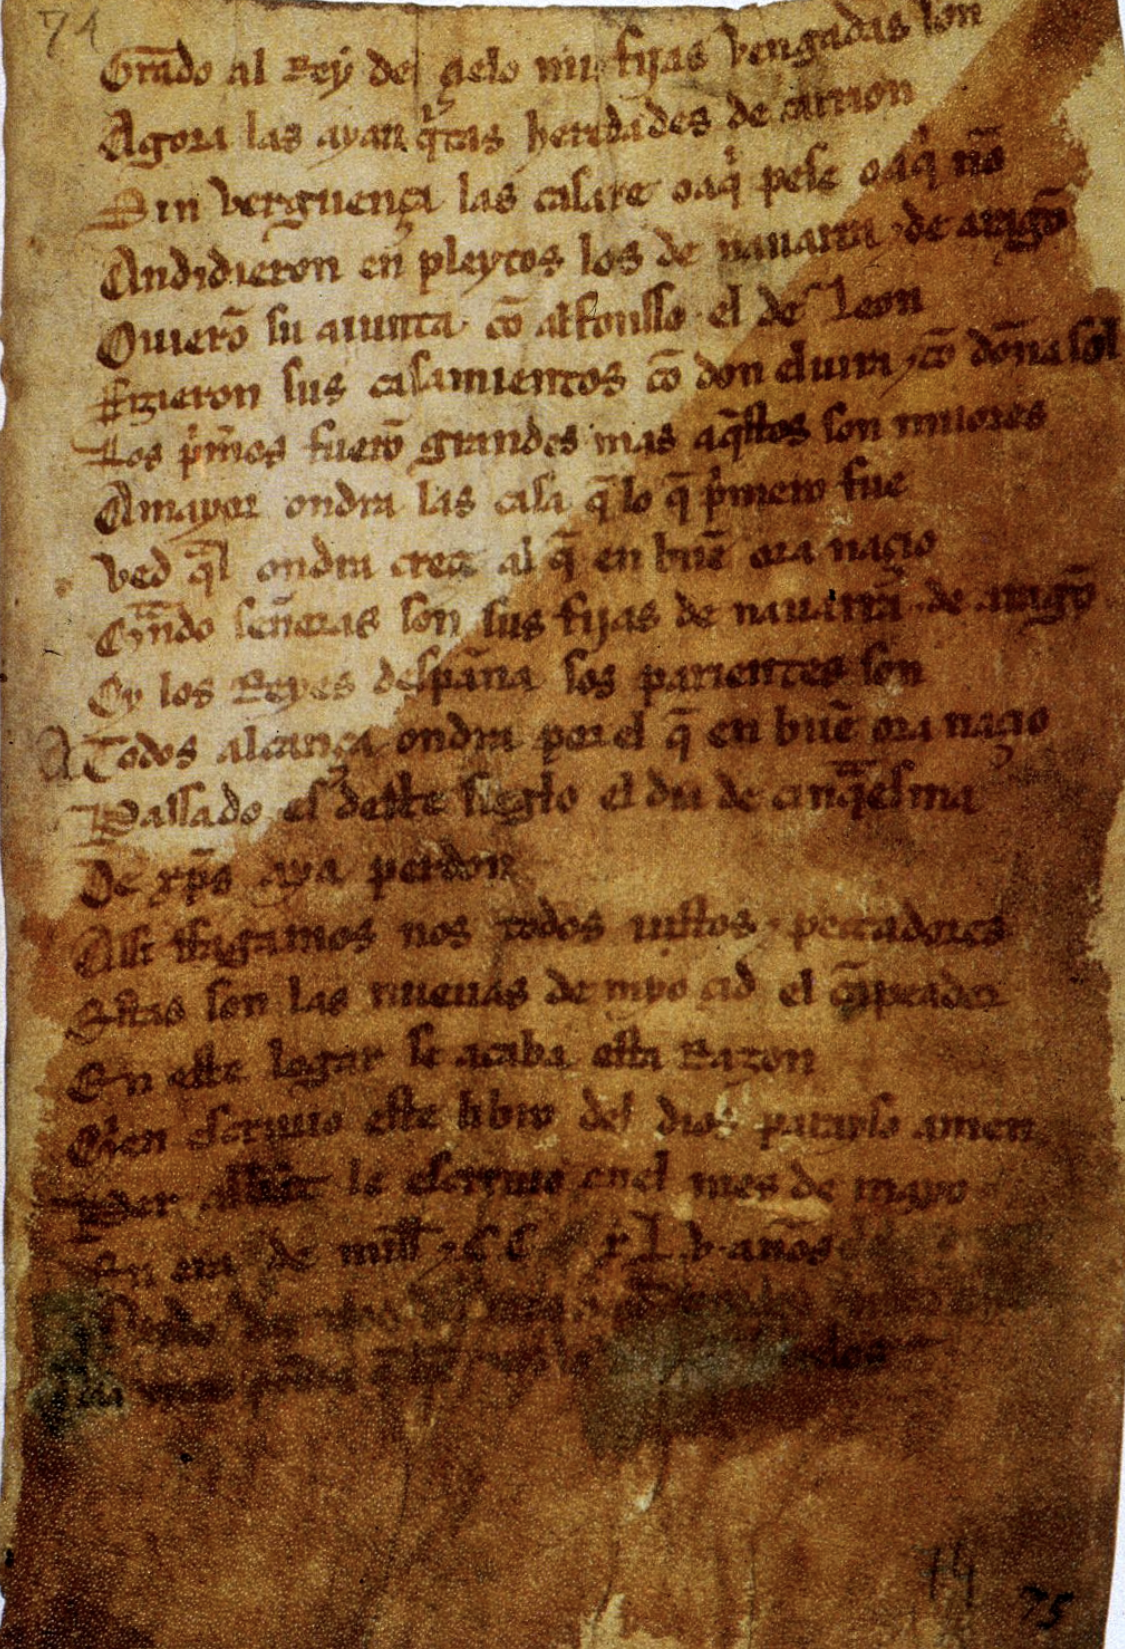 74
Grado al Rey del çielo mis fijas vengadas son
Agora las ayan q̇tas heredades de carrion
Sin verguença las casare o aq̇ pese o aq̇ nõ
Andidieron en pleytos los de nauarra ⁊ de aragõ
Ouierõ su aiunta cõ alfonsso el de Leon
Fizieron sus casamientos cõ don eluira ⁊ cõ doña sol
Los ṗmeros fuerõ grandes mas aq̃stos son miiores
A mayor ondra las casa q̃ lo q̃ ṗmero fue
Ved q̃l ondra creçe al q̃ en buẽ ora naçio
Q̃ndo señoras son sus fijas de nauarra ⁊ de aragõ
Oy los Reyes despaña sos parientes son
A Todos alcança ondra por el q̃ en buẽ ora naçio
Passado es deste sieglo el dia de cinq̃esma
De xp̃s aya perdon
Assi ffagamos nos todos iustos ⁊ peccadores
Estas son las nueuas de myo çid el cãpeador
En este logar se acaba esta Razon
Q̇en escriuio este libro del dios parayso amen
Per abbat le escriuio enel mes de mayo
En era de mill ⁊ C C xL.v. años
74
75